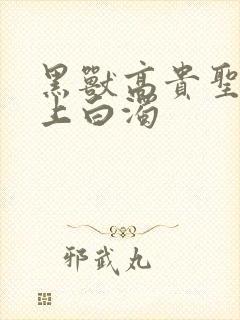 黑獸高貴聖
上白濁
邪武丸